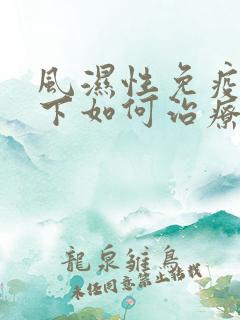 風濕性免疫
下如何治療
龍泉雛鳥
未經同意禁止轉載